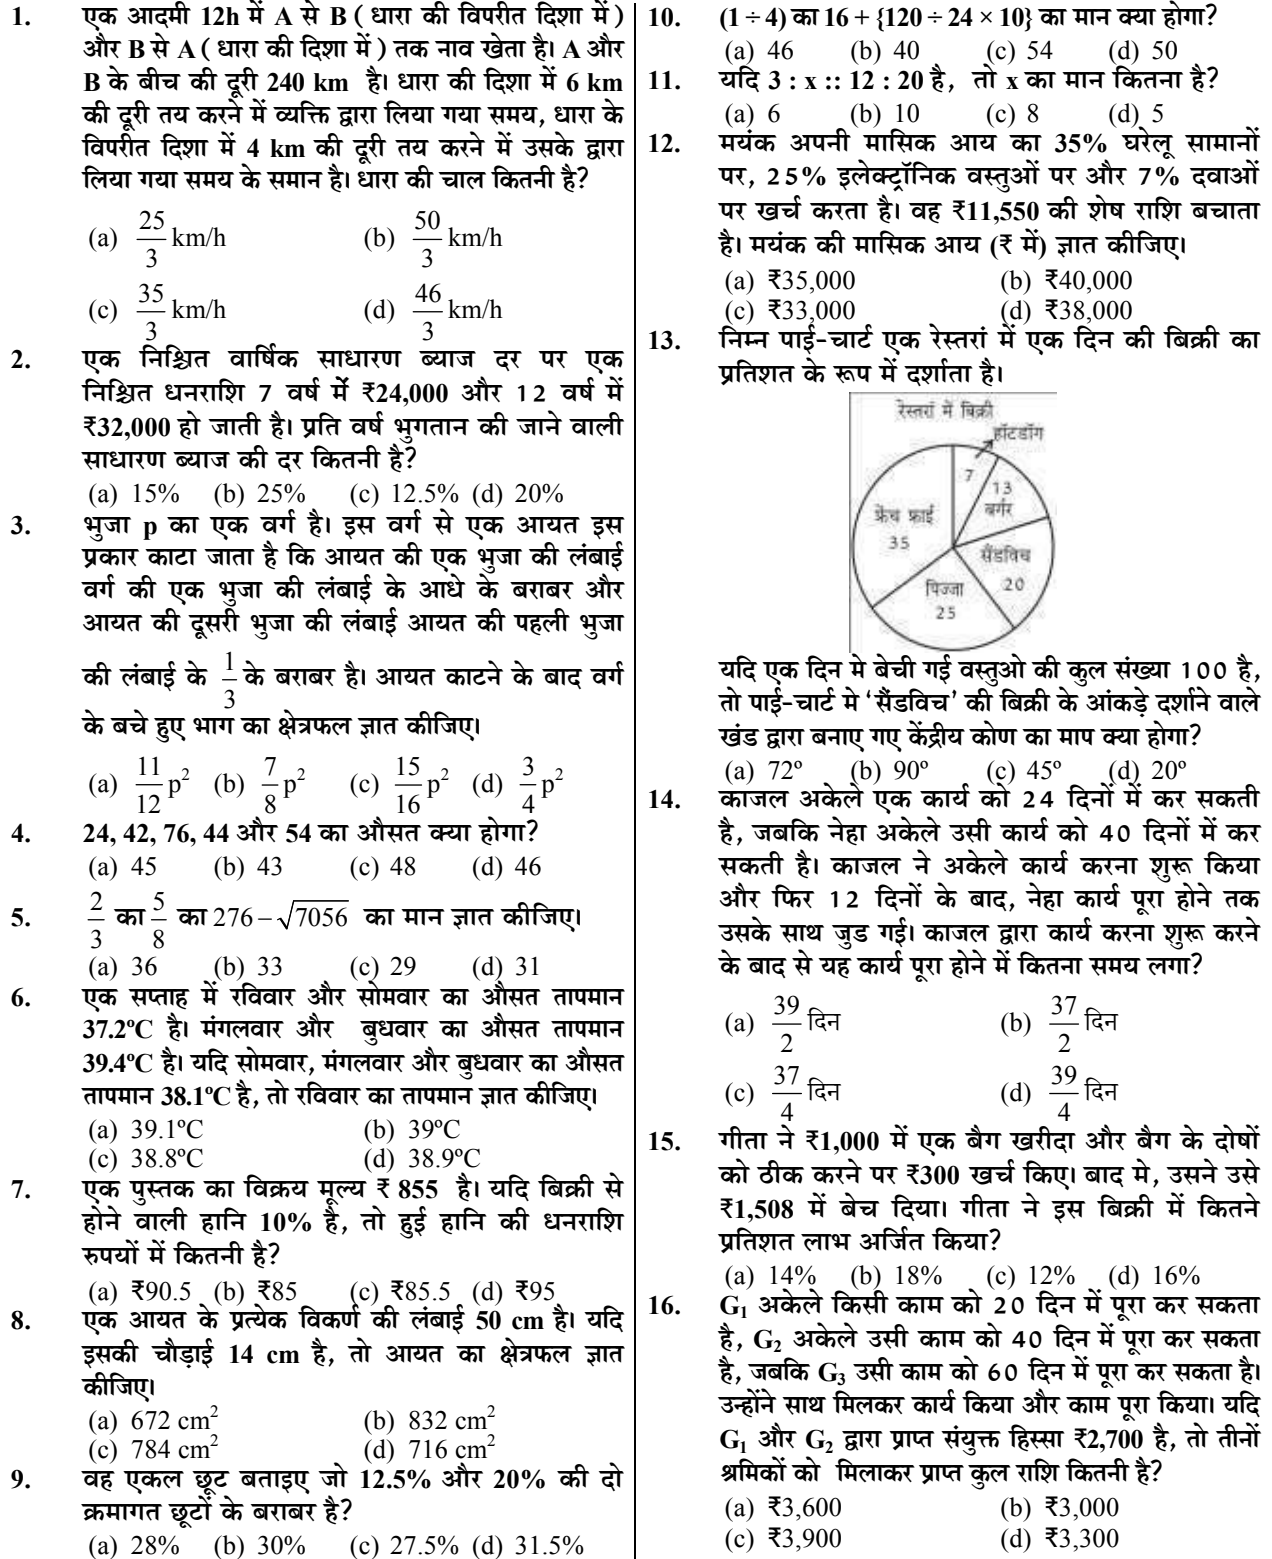 1. एक आदमी 12h में A से B ( धारा की विपरीत दिशा में )
और B से A ( धारा की दिशा में ) तक नाव खेता है। A और
B के बीच की दूरी 240 km है। धारा की दिशा में 6 km
की दूरी तय करने में व्यक्ति द्वारा लिया गया समय, धारा के
विपरीत दिशा में 4 km की दूरी तय करने में उसके द्वारा
लिया गया समय के समान है। धारा की चाल कितनी है?
(a) 25/3 km/h (b) 50/3 km/h
(c) 35/3 km/h (d) 46/3 km/h
2. एक निश्चित वार्षिक साधारण ब्याज दर पर एक
निश्चित धनराशि 7 वर्ष में ₹24,000 और 12 वर्ष में
₹32,000 हो जाती है। प्रति वर्ष भुगतान की जाने वाली
साधारण ब्याज की दर कितनी है?
(a) 15% (b) 25% (c) 12.5% (d) 20%
3. भुजा p का एक वर्ग है। इस वर्ग से एक आयत इस
प्रकार काटा जाता है कि आयत की एक भुजा की लंबाई
वर्ग की एक भुजा की लंबाई के आधे के बराबर और
आयत की दूसरी भुजा की लंबाई आयत की पहली भुजा
की लंबाई के 1/3 के बराबर है। आयत काटने के बाद वर्ग
के बचे हुए भाग का क्षेत्रफल ज्ञात कीजिए।
(a) 11/12 p² (b) 7/8 p² (c) 15/16 p² (d) 3/4 p²
4. 24, 42, 76, 44 और 54 का औसत क्या होगा?
(a) 45 (b) 43 (c) 48 (d) 46
5. 2/3 का 5/8 का 276 – √7056 का मान ज्ञात कीजिए।
(a) 36 (b) 33 (c) 29 (d) 31
6. एक सप्ताह में रविवार और सोमवार का औसत तापमान
37.2ºC है। मंगलवार और बुधवार का औसत तापमान
39.4ºC है। यदि सोमवार, मंगलवार और बुधवार का औसत
तापमान 38.1ºC है, तो रविवार का तापमान ज्ञात कीजिए।
(a) 39.1ºC (b) 39ºC
(c) 38.8ºC (d) 38.9ºC
7. एक पुस्तक का विक्रय मूल्य ₹ 855 है। यदि बिक्री से
होने वाली हानि 10% है, तो हुई हानि की धनराशि
रुपयों में कितनी है?
(a) ₹90.5 (b) ₹85 (c) ₹85.5 (d) ₹95
8. एक आयत के प्रत्येक विकर्ण की लंबाई 50 cm है। यदि
इसकी चौड़ाई 14 cm है, तो आयत का क्षेत्रफल ज्ञात
कीजिए।
(a) 672 cm² (b) 832 cm²
(c) 784 cm² (d) 716 cm²
9. वह एकल छूट बताइए जो 12.5% और 20% की दो
क्रमागत छूटों के बराबर है?
(a) 28% (b) 30% (c) 27.5% (d) 31.5%
10. (1 ÷ 4) का 16 + {120 ÷ 24 × 10} का मान क्या होगा?
(a) 46 (b) 40 (c) 54 (d) 50
11. यदि 3 : x :: 12 : 20 है, तो x का मान कितना है?
(a) 6 (b) 10 (c) 8 (d) 5
12. मयंक अपनी मासिक आय का 35% घरेलू सामानों
पर, 25% इलेक्ट्रॉनिक वस्तुओं पर और 7% दवाओं
पर खर्च करता है। वह ₹11,550 की शेष राशि बचाता
है। मयंक की मासिक आय (₹ में) ज्ञात कीजिए।
(a) ₹35,000 (b) ₹40,000
(c) ₹33,000 (d) ₹38,000
13. निम्न पाई-चार्ट एक रेस्तरां में एक दिन की बिक्री का
प्रतिशत के रूप में दर्शाता है।
रेस्तरां में बिक्री
हॉटडॉग
7
13
बर्गर
फ्रेंच फ्राई
35
सैंडविच
20
पिज्जा
25
यदि एक दिन मे बेची गई वस्तुओ की कुल संख्या 100 है,
तो पाई-चार्ट मे ‘सैंडविच’ की बिक्री के आंकड़े दर्शाने वाले
खंड द्वारा बनाए गए केंद्रीय कोण का माप क्या होगा?
(a) 72º (b) 90º (c) 45º (d) 20º
14. काजल अकेले एक कार्य को 24 दिनों में कर सकती
है, जबकि नेहा अकेले उसी कार्य को 40 दिनों में कर
सकती है। काजल ने अकेले कार्य करना शुरू किया
और फिर 12 दिनों के बाद, नेहा कार्य पूरा होने तक
उसके साथ जुड गई। काजल द्वारा कार्य करना शुरू करने
के बाद से यह कार्य पूरा होने में कितना समय लगा?
(a) 39/2 दिन (b) 37/2 दिन
(c) 37/4 दिन (d) 39/4 दिन
15. गीता ने ₹1,000 में एक बैग खरीदा और बैग के दोषों
को ठीक करने पर ₹300 खर्च किए। बाद मे, उसने उसे
₹1,508 में बेच दिया। गीता ने इस बिक्री में कितने
प्रतिशत लाभ अर्जित किया?
(a) 14% (b) 18% (c) 12% (d) 16%
16. G₁ अकेले किसी काम को 20 दिन में पूरा कर सकता
है, G₂ अकेले उसी काम को 40 दिन में पूरा कर सकता
है, जबकि G₃ उसी काम को 60 दिन में पूरा कर सकता है।
उन्होंने साथ मिलकर कार्य किया और काम पूरा किया। यदि
G₁ और G₂ द्वारा प्राप्त संयुक्त हिस्सा ₹2,700 है, तो तीनों
श्रमिकों को मिलाकर प्राप्त कुल राशि कितनी है?
(a) ₹3,600 (b) ₹3,000
(c) ₹3,900 (d) ₹3,300